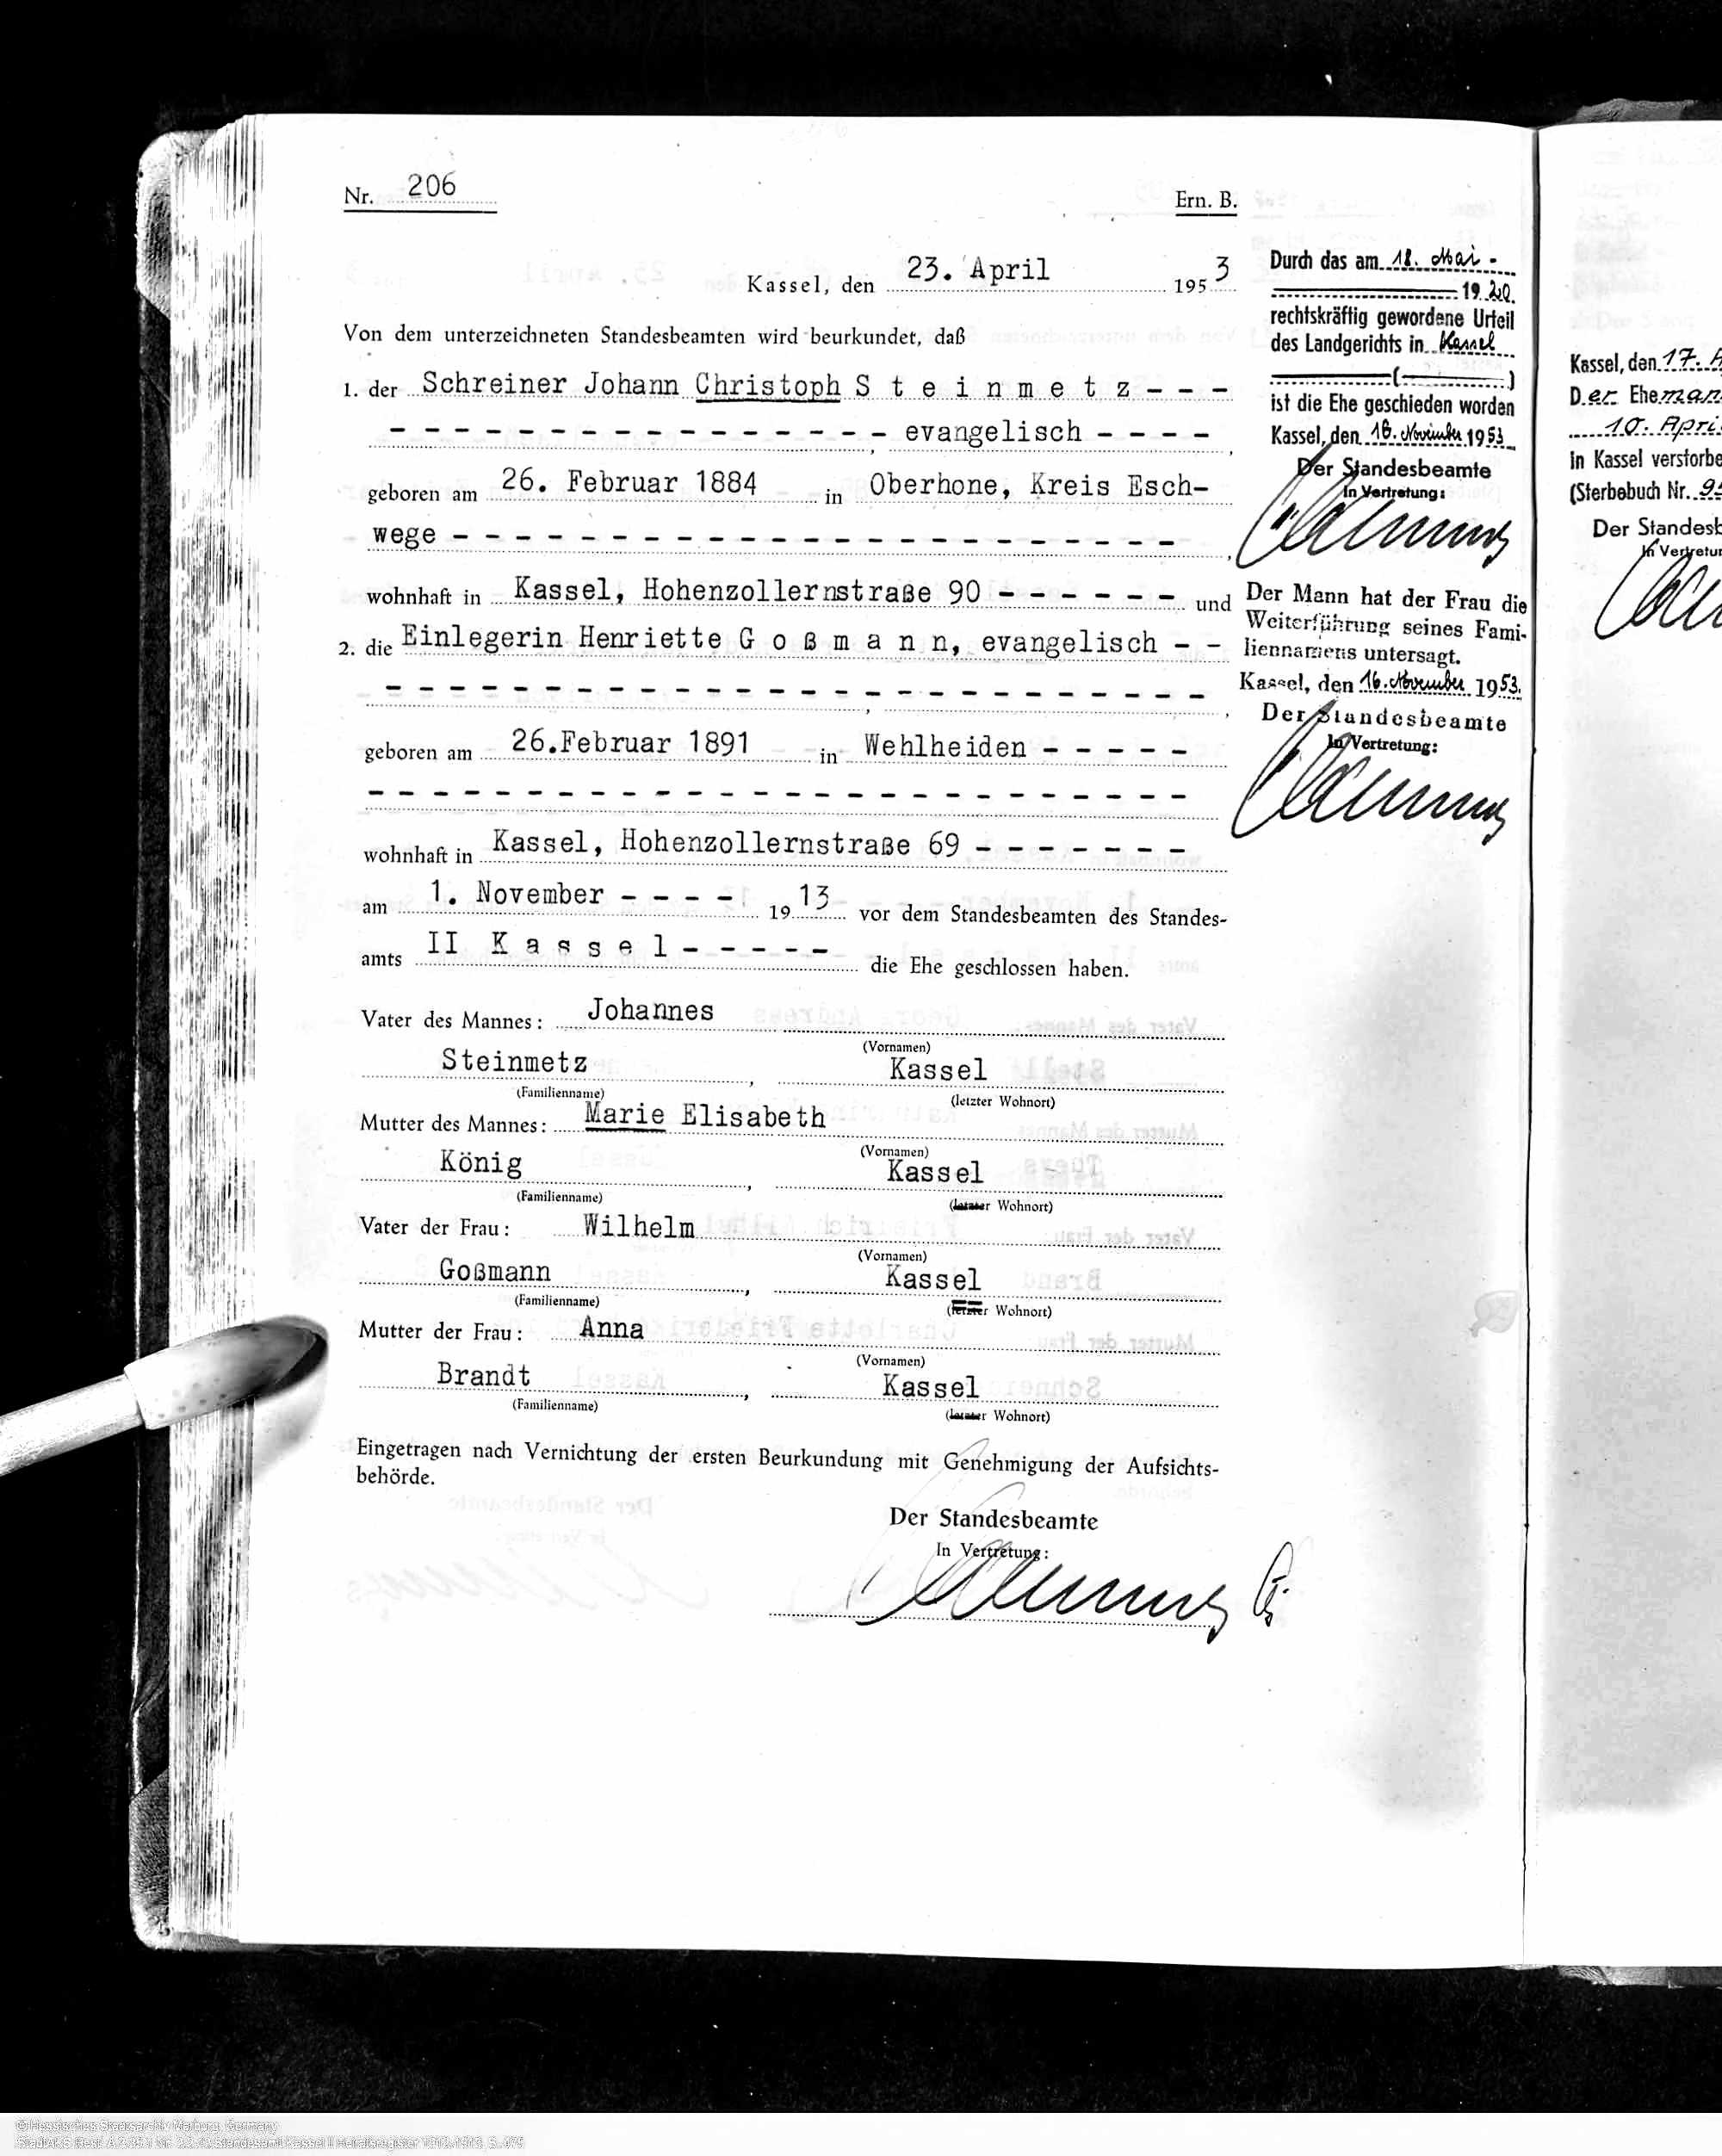 Nr. 206
Ern. B.
Kassel, den 23. April 1953
Von dem unterzeichneten Standesbeamten wird beurkundet, daß
1. der Schreiner Johann Christoph S t e i n m e t z - - -
- - - - - - - - - - - - - - - -, evangelisch - - - -,
geboren am 26. Februar 1884 in Oberhone, Kreis Esch-
wege - - - - - - - - - - - - - - - - - - - - - - -,
wohnhaft in Kassel, Hohenzollernstraße 90 - - - - - - und
2. die Einlegerin Henriette G o ß m a n n, evangelisch - -
- - - - - - - - - - - - - - - - - - - - - - - - - -,
geboren am 26.Februar 1891 in Wehlheiden - - - - -
- - - - - - - - - - - - - - - - - - - - - - - - - -
wohnhaft in Kassel, Hohenzollernstraße 69 - - - - - - -
am 1. November - - - - 1913 vor dem Standesbeamten des Standes-
amts II K a s s e l - - - - - die Ehe geschlossen haben.
Vater des Mannes: Johannes
(Vornamen)
Steinmetz, Kassel
(Familienname) (letzter Wohnort)
Mutter des Mannes: Marie Elisabeth
(Vornamen)
König, Kassel
(Familienname) (letzter Wohnort)
Vater der Frau: Wilhelm
(Vornamen)
Goßmann, Kassel
(Familienname) (letzter Wohnort)
Mutter der Frau: Anna
(Vornamen)
Brandt, Kassel
(Familienname) (letzter Wohnort)
Eingetragen nach Vernichtung der ersten Beurkundung mit Genehmigung der Aufsichts-
behörde.
Der Standesbeamte
In Vertretung:
Durch das am 18. Mai -
1920
rechtskräftig gewordene Urteil
des Landgerichts in Kassel
( )
ist die Ehe geschieden worden
Kassel, den 16. November 1953
Der Standesbeamte
In Vertretung:
Der Mann hat der Frau die
Weiterführung seines Fami-
liennamens untersagt.
Kassel, den 16. November 1953.
Der Standesbeamte
In Vertretung:
Kassel, den 17.
Der Eheman
10. Apri
in Kassel verstorbe
(Sterbebuch Nr. 9
Der Standesb
In Vertretun
© Hessisches Staatsarchiv Marburg, Germany